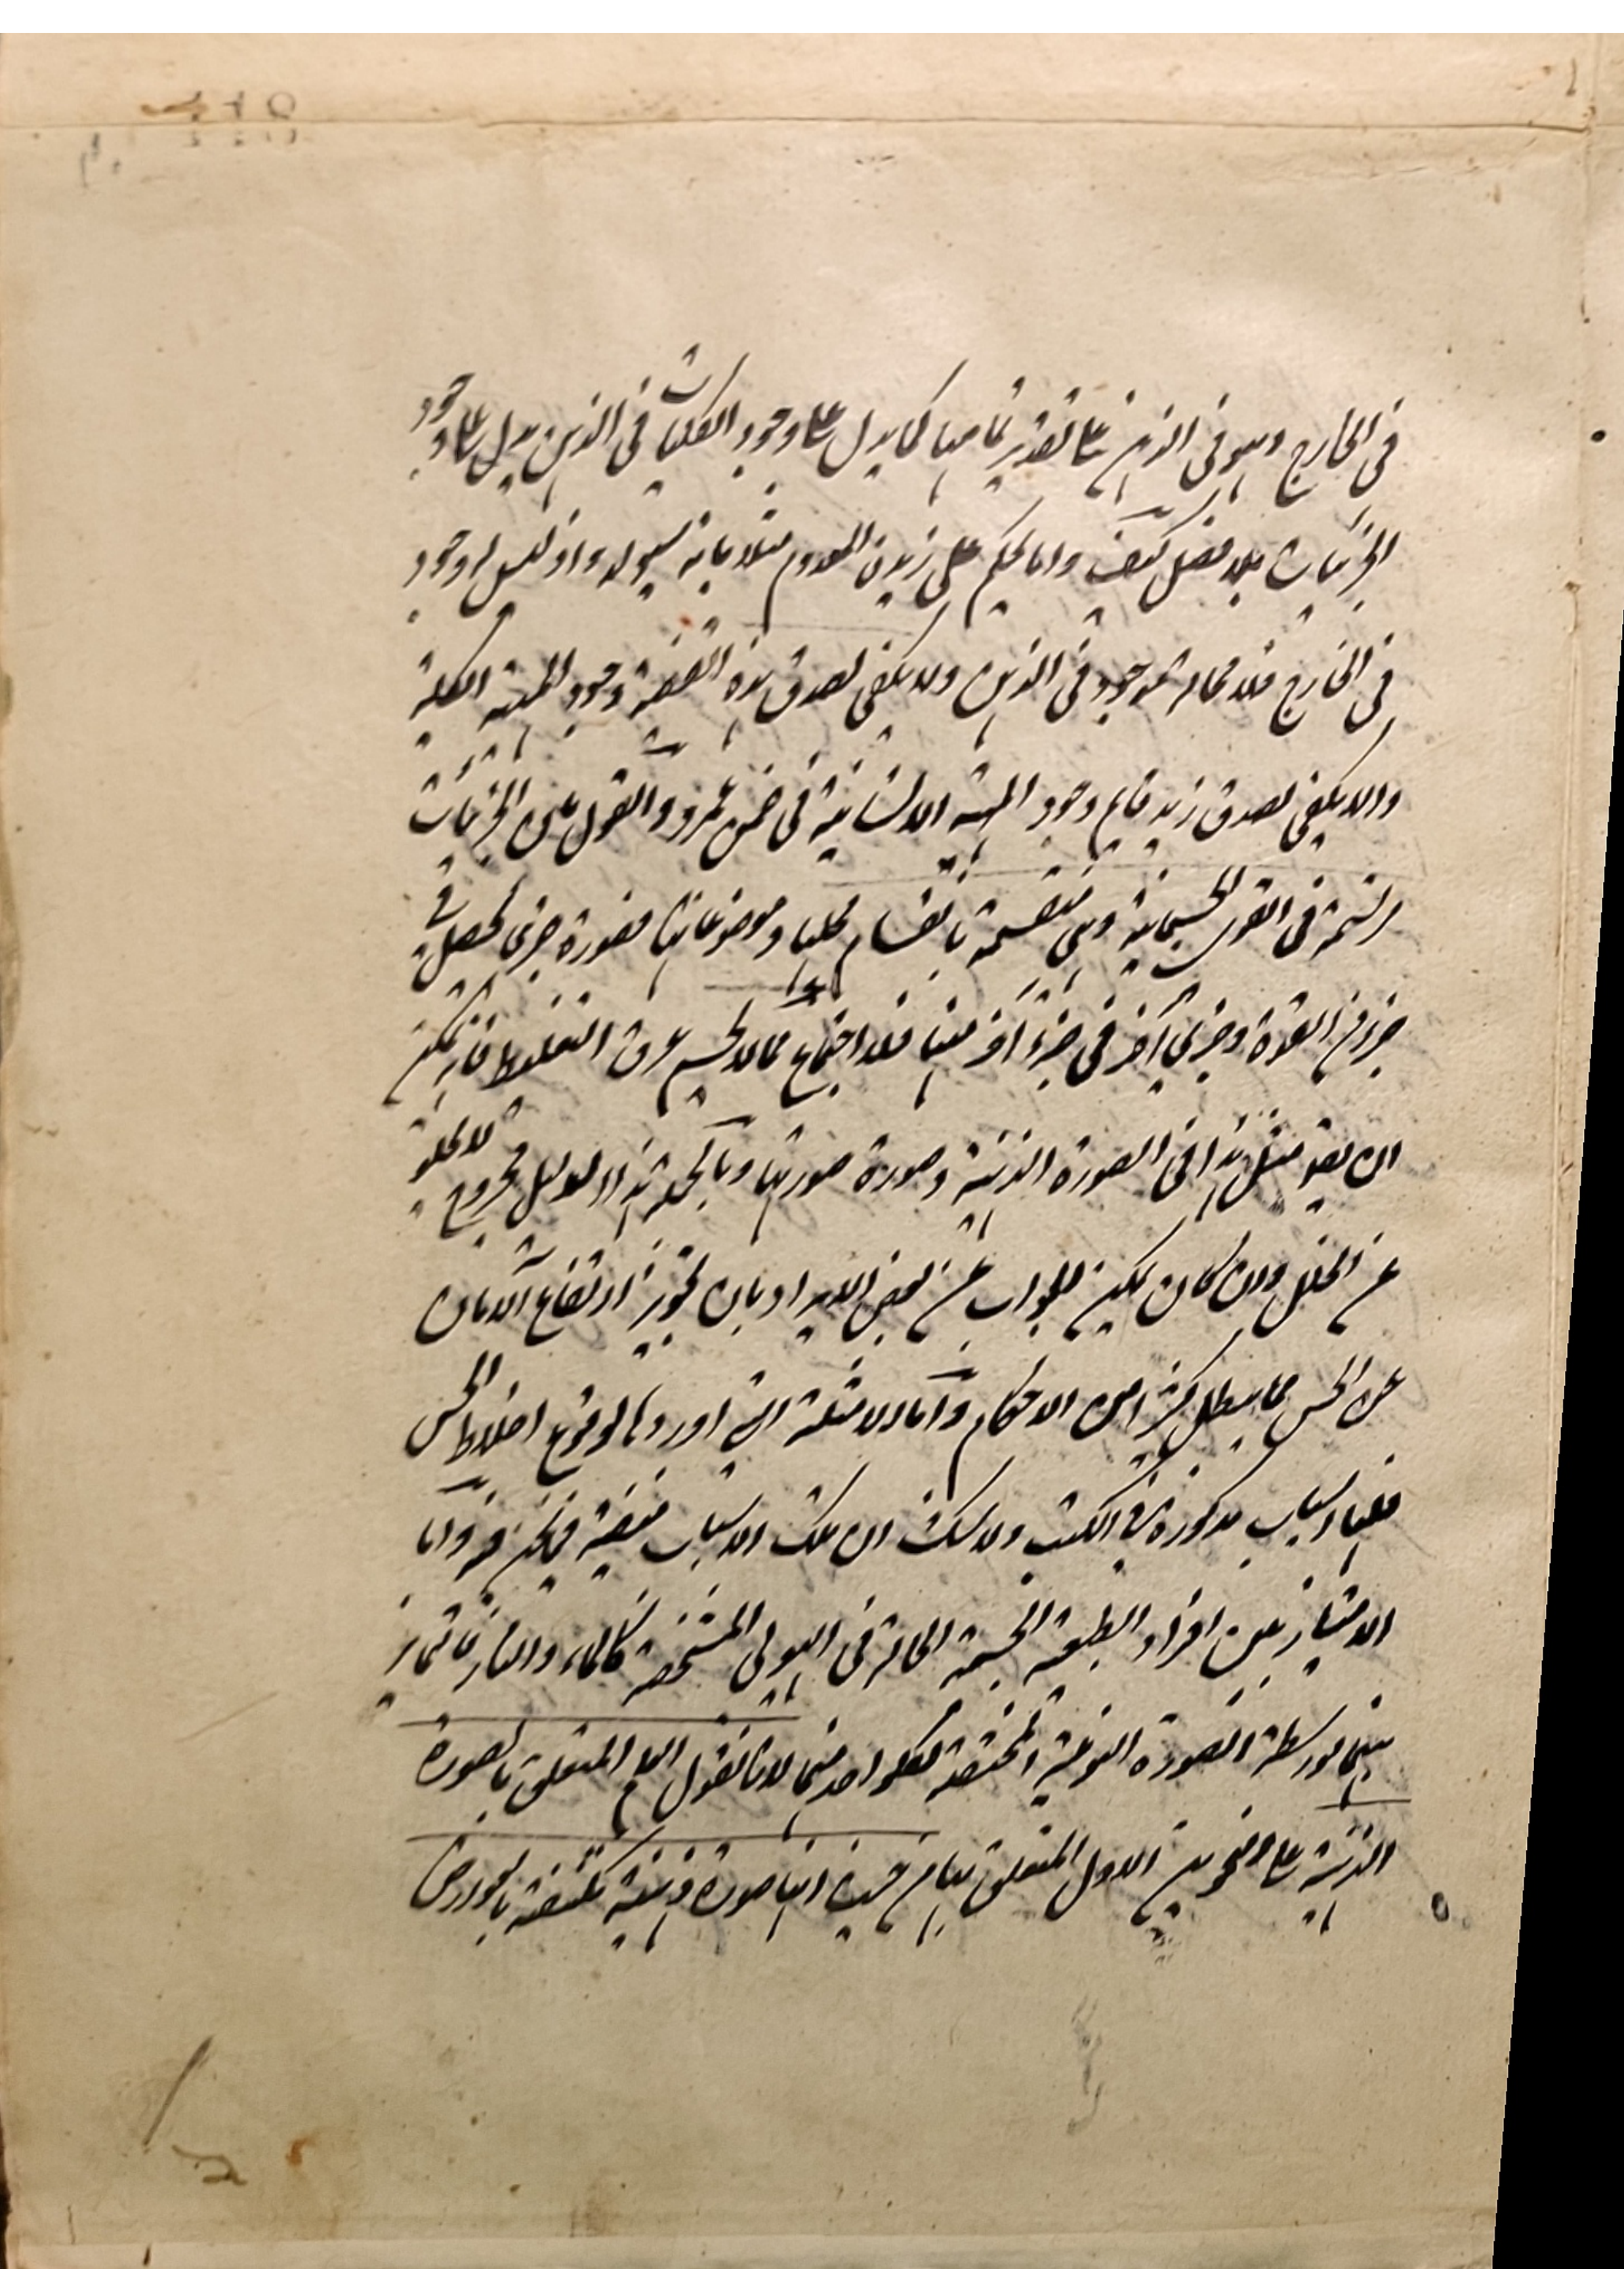 في الخارج وهو في الذهن على تقدير تمامها كما يدل على وجود الكليات في الذهن يدل على وجود
الجزئيات بلا فصل كيف وانا نحكم على زيد المعدوم مثلا بانه سيولد واذ ليس له وجود
في الخارج فلا محالة موجود في الذهن ولا يكفي لصدق هذه القضية وجود المهية الكلية
والا يكفي لصدق زيد قايم وجود المهية الانسانية في ضمن عمرو والقول بان الجزئيات
مرتسمة في القوى الجسمانية وهي منقسمة بانقسام محلها وموضوعاتها فصورة جزئي تحصل في
جزء من القوة وجزئي آخر في جزء آخر منها فلا اجتماع مما لا يحسم عرق التغليط فانه يمكن
ان يقر مثل هذا في الصورة الذهنية وصورة صورتها وبالجملة هذا الدليل مجروح لا يخلو
عن الخلل وان كان يمكن الجواب عن بعض الايراد بان تجويز ارتفاع الامان
عن الحس مما يبطل كثيرا من الاحكام وأما الامثلة التي اوردها لوقوع اغلاط الحس
فلها اسباب مذكورة في الكتب ولا شك ان تلك الاسباب منتفية فيما نحن فيه وأما
الامتياز بين افراد الطبيعة الجسمية الحالة في الهيولى المشخصة كالماء والنار فانما تمايز
بينهما بواسطة الصورة النوعية المختصة لكل واحد منهما لانا نقول العلم المتعلق بالصورة
الذهنية على نحوين الاول المتعلق بها من حيث انها صورة ذهنية مكتنفة بالعوارض